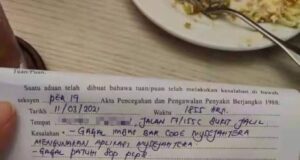 Tuan/Puan,
Satu aduan telah dibuat bahawa tuan/puan telah melakukan kesalahan di bawah
seksyen PER 19 Akta Pencegahan dan Pengawalan Penyakit Berjangkit 1988.
Tarikh 11/03/2021 Waktu 1855 HRS.
Tempat JALAN BUKIT JALIL
Kesalahan :- GAGAL IMBAS BAR CODE MYSEJAHTERA
MENGGUNAKAN APLIKASI MYSEJAHTERA
- GAGAL PATUH SOP PKPB